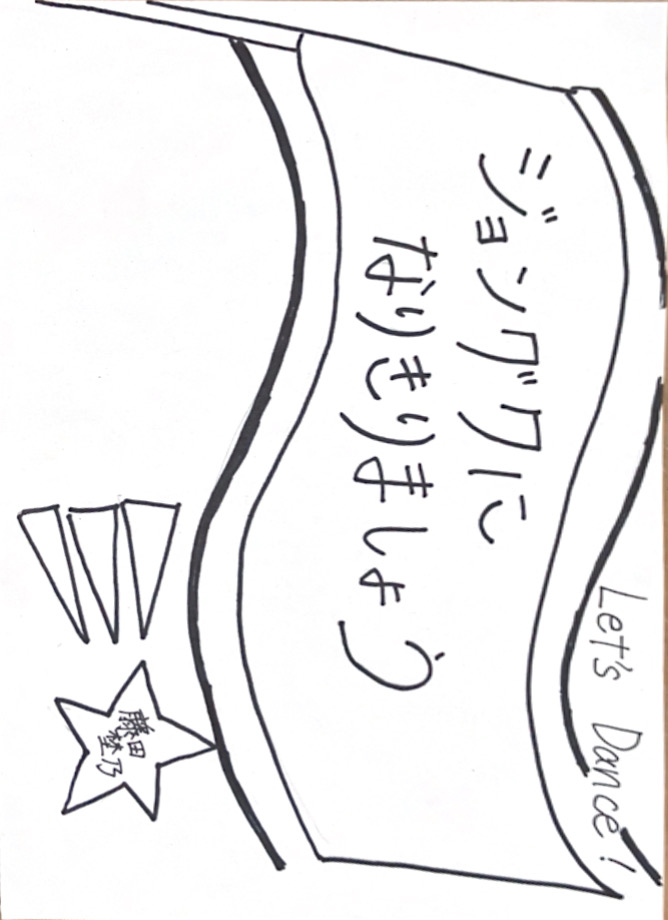 Let's Dance!
ジョングクに
なりきりましょう
藤田
埜乃